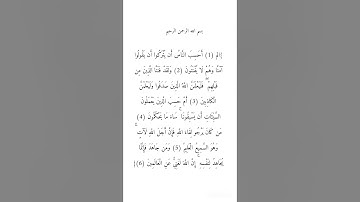 بسم الله الرحمن الرحيم
الم (1) أَحَسِبَ النَّاسُ أَن يُتْرَكُوا أَن يَقُولُوا
آمَنَّا وَهُمْ لَا يُفْتَنُونَ (2) وَلَقَدْ فَتَنَّا الَّذِينَ مِن
قَبْلِهِمْ ۖ فَلَيَعْلَمَنَّ اللَّهُ الَّذِينَ صَدَقُوا وَلَيَعْلَمَنَّ
الْكَاذِبِينَ (3) أَمْ حَسِبَ الَّذِينَ يَعْمَلُونَ
السَّيِّئَاتِ أَن يَسْبِقُونَا ۚ سَاءَ مَا يَحْكُمُونَ (4)
مَن كَانَ يَرْجُو لِقَاءَ اللَّهِ فَإِنَّ أَجَلَ اللَّهِ لَآتٍ ۚ
وَهُوَ السَّمِيعُ الْعَلِيمُ (5) وَمَن جَاهَدَ فَإِنَّمَا
يُجَاهِدُ لِنَفْسِهِ ۚ إِنَّ اللَّهَ لَغَنِيٌّ عَنِ الْعَالَمِينَ (6)}